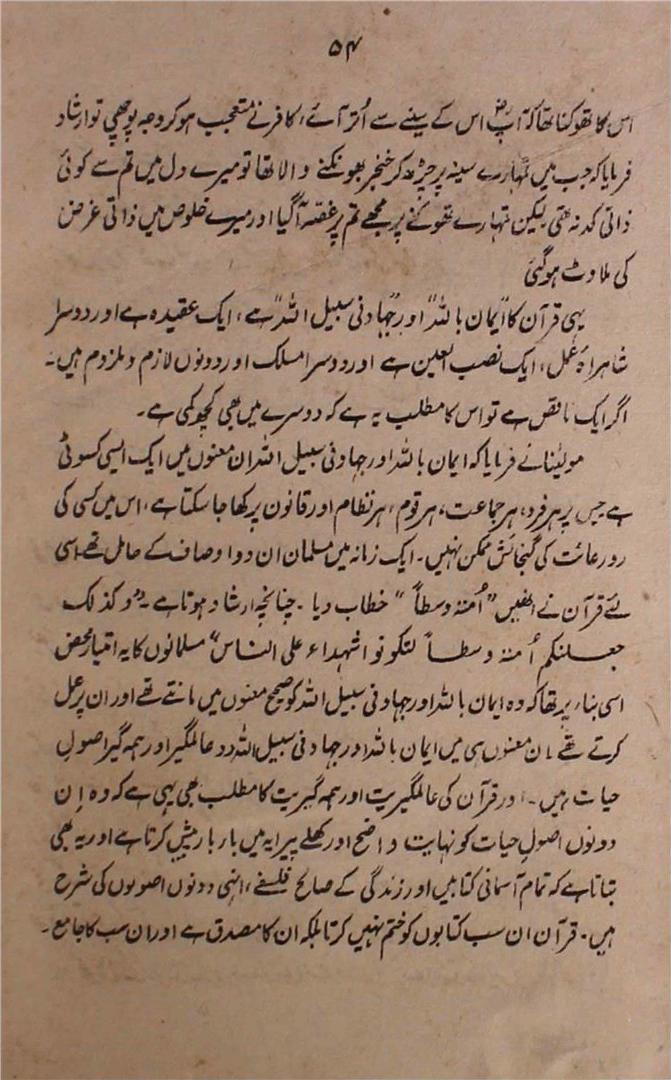 ۵۴
اس کا تھوکنا تھا کہ آپؓ اس کے سینے سے اُتر آئے، کافر نے متعجب ہو کر وجہ پوچھی تو ارشاد
فرمایا کہ جب میں تمہارے سینہ پر چڑھ کر خنجر بھونکنے والا تھا تو میرے دل میں تم سے کوئی
ذاتی کد نہ تھی لیکن تمہارے تھوکنے پر مجھے تم پر غصّہ آگیا اور میرے خلوص میں ذاتی غرض
کی ملاوٹ ہو گئی
یہی قرآن کا "ایمان باللہ" اور "جہاد فی سبیل اللہ" ہے، ایک عقیدہ ہے اور دوسرا
شاہراہِ عمل، ایک نصب العین ہے اور دوسرا مسلک اور دونوں لازم و ملزوم ہیں۔
اگر ایک ناقص ہے تو اس کا مطلب یہ ہے کہ دوسرے میں بھی کچھ کمی ہے۔
مولینا نے فرمایا کہ ایمان باللہ اور جہاد فی سبیل اللہ ان معنوں میں ایک ایسی کسوٹی
ہے جس پر ہر فرد، ہر جماعت، ہر قوم، ہر نظام اور قانون پرکھا جا سکتا ہے، اس میں کسی کی
رو رعائت کی گنجائش ممکن نہیں۔ ایک زمانہ میں مسلمان ان دو اوصاف کے حامل تھے اسی
لئے قرآن نے انھیں "اُمتہ وسطاً" خطاب دیا۔ چنانچہ ارشاد ہوتا ہے۔ "وکذلک
جعلنکم اُمتہ وسطاً لتکونوا شہداء علی الناس" مسلمانوں کا یہ امتیاز محض
اسی بناء پر تھا کہ وہ ایمان باللہ اور جہاد فی سبیل اللہ کو صحیح معنوں میں مانتے تھے اور ان پر عمل
کرتے تھے۔ ان معنوں ہی میں ایمان باللہ اور جہاد فی سبیل اللہ دو عالمگیر اور ہمہ گیر اصولِ
حیات ہیں۔ اور قرآن کی عالمگیریت اور ہمہ گیریت کا مطلب بھی یہی ہے کہ وہ اِن
دونوں اصولِ حیات کو نہایت واضح اور کھلے پیرایہ میں بار بار پیش کرتا ہے اور یہ بھی
بتاتا ہے کہ تمام آسمانی کتابیں اور زندگی کے صالح فلسفے، انہی دونوں اصولوں کی شرح
ہیں۔ قرآن ان سب کتابوں کو ختم نہیں کرتا بلکہ ان کا مصدق ہے اور ان سب کا جامع۔